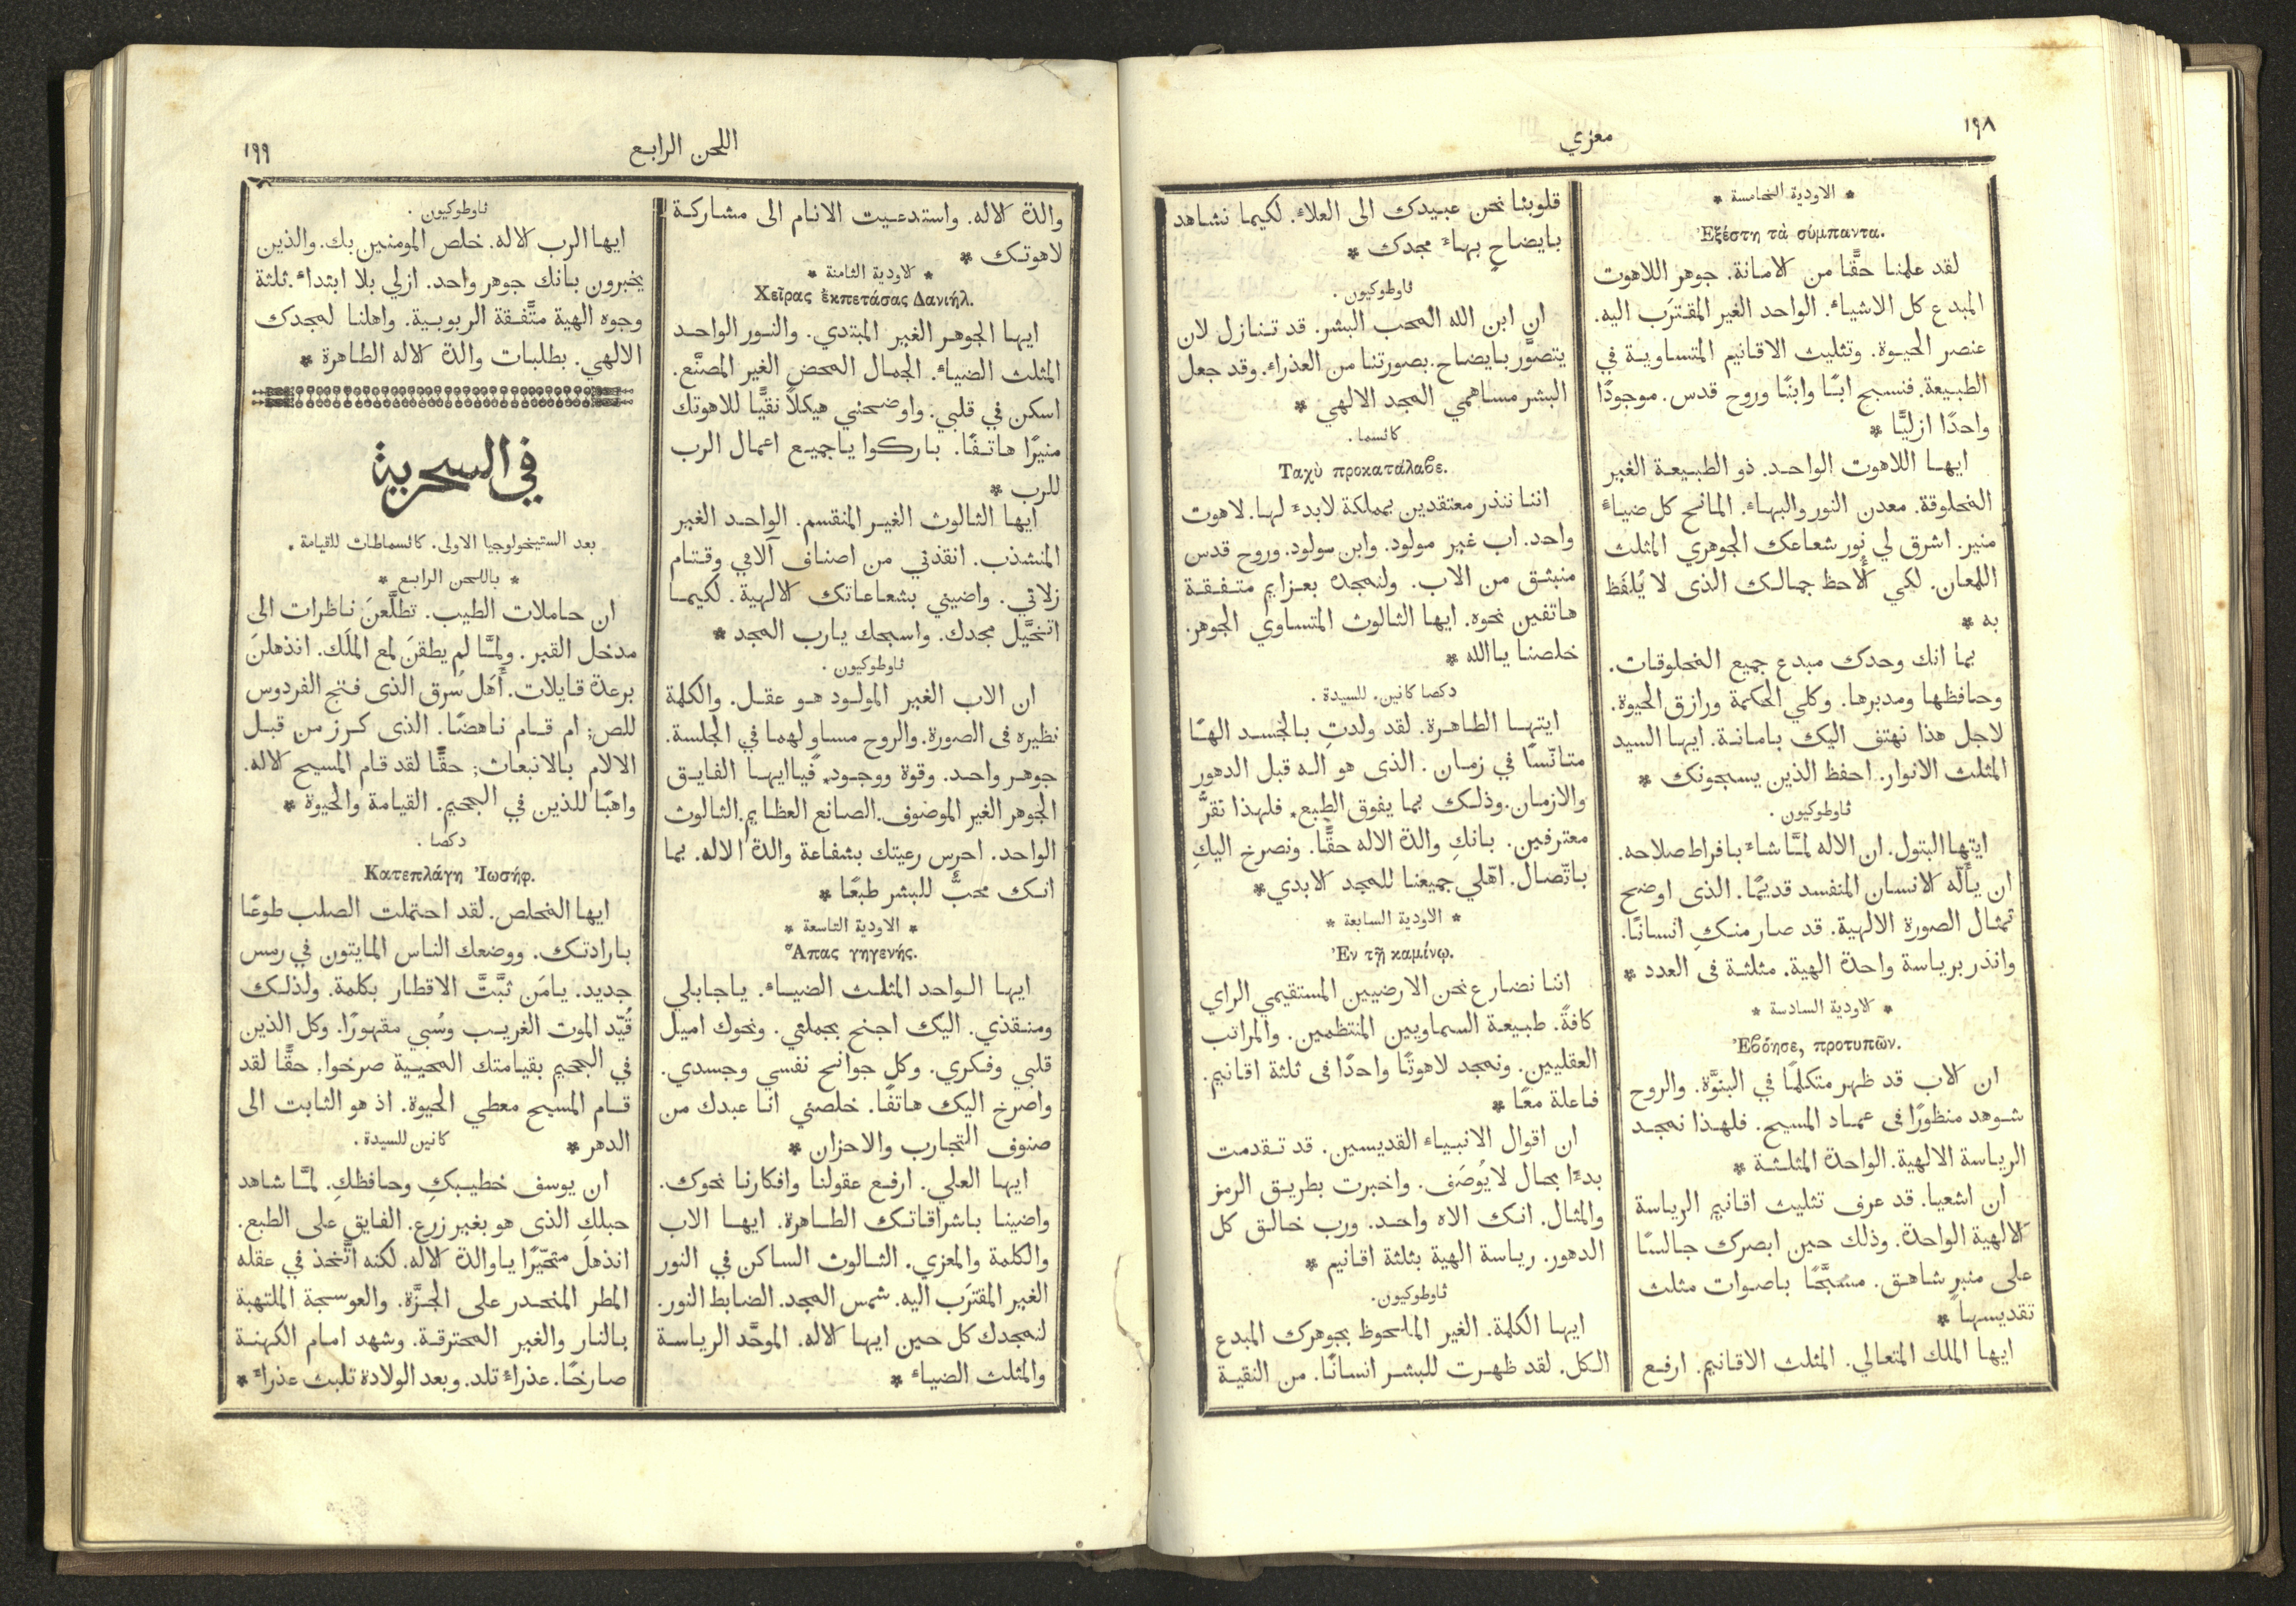 ١٩٨
معزي
* الاودية الخامسة *
Ἐξέστη τὰ σύμπαντα.
لقد علمنا حقًّا من الامانة. جوهر اللاهوت
المبدع كل الاشياء. الواحد الغير المقترَب اليه.
عنصر الحيوة. وتثليث الاقانيم المتساوية في
الطبيعة. فنسبح ابًا وابنًا وروح قدس. موجودًا
واحدًا ازليًّا *
ايها اللاهوت الواحد. ذو الطبيعة الغير
المخلوقة. معدن النور والبهاء. المانح كل ضياء
منير. اشرق لي نور شعاعك الجوهري المثلث
اللمعان. لكي ألاحظ جمالك الذى لا يُلفَظ
به *
بما انك وحدك مبدع جميع المخلوقات.
وحافظها ومدبرها. وكلي الحكمة ورازق الحيوة.
لاجل هذا نهتف اليك بامانة. ايها السيد
المثلث الانوار. احفظ الذين يسبحونك *
ثاوطوكيون .
ايتها البتول. ان الاله لمَّا شاء بافراط صلاحه.
ان يألّه الانسان المنفسد قديمًا. الذى اوضح
تمثال الصورة الالهية. قد صار منكِ انسانًا.
وانذر برياسة واحدة الهية. مثلثة فى العدد *
* الاودية السادسة *
Ἐβόησε, προτυπῶν.
ان الاب قد ظهر متكلمًا في البنوَّة. والروح
شوهد منظورًا فى عماد المسيح. فلهذا نمجد
الرياسة الالهية. الواحدة المثلثة *
ان اشعيا. قد عرف تثليث اقانيم الرياسة
الالهية الواحدة. وذلك حين ابصرك جالسًا
على منبر شاهق. مسبَّحًا باصوات مثلث
تقديسها *
ايها الملك المتعالي. المثلث الاقانيم. ارفع
قلوبنا نحن عبيدك الى العلاء. لكيما نشاهد
بايضاحٍ بهاء مجدك *
ثاوطوكيون .
ان ابن الله المحب البشر. قد تنازل لان
يتصوَّر بايضاح. بصورتنا من العذراء. وقد جعل
البشر مساهمي المجد الالهي *
كاثسما .
Ταχὺ προκατάλαβε.
اننا ننذر معتقدين بمملكة لابدء لها. لاهوت
واحد. اب غير مولود. وابن مولود. وروح قدس
منبثق من الاب. ولنمجده بعزايم متفقة
هاتفين نحوه. ايها الثالوث المتساوي الجوهر.
خلصنا ياالله *
دكصا كانين. للسيدة .
ايتها الطاهرة. لقد ولدتِ بالجسد الهًا
متانّسًا في زمان. الذى هو اله قبل الدهور
والازمان. وذلك بما يفوق الطبع. فلهذا نقرُّ
معترفين. بانكِ والدة الاله حقًّا. ونصرخ اليكِ
باتّصال. اهّلي جميعنا للمجد الابدي *
* الاودية السابعة *
Ἐν τῇ καμίνῳ.
اننا نضارع نحن الارضيين المستقيمي الراي
كافةً. طبيعة السماويين المنتظمين. والمراتب
العقليين. ونمجد لاهوتًا واحدًا فى ثلثة اقانيم.
فاعلة معًا *
ان اقوال الانبياء القديسين. قد تقدمت
بدءًا بحال لا يُوصَف. واخبرت بطريق الرمز
والمثال. انك الاه واحد. ورب خالق كل
الدهور. رياسة الهية بثلثة اقانيم *
ثاوطوكيون.
ايها الكلمة. الغير الملحوظ بجوهرك المبدع
الكل. لقد ظهرت للبشر انسانًا. من النقية
اللحن الرابع
١٩٩
والدة الاله. واستدعيت الانام الى مشاركة
لاهوتك *
* الاودية الثامنة *
Χεῖρας ἐκπετάσας Δανιήλ.
ايها الجوهر الغير المبتدي. والنور الواحد
المثلث الضياء. الجمال المحض الغير المصنَّع.
اسكن في قلبي. واوضحني هيكلاً نقيًّا للاهوتك
منيرًا هاتفًا. باركوا ياجميع اعمال الرب
للرب *
ايها الثالوث الغير المنقسم. الواحد الغير
المنشذب. انقذني من اصناف آلامي وقتام
زلاتي. واضيني بشعاعاتك الالهية. لكيما
اتخيَّل مجدك. واسبحك يارب المجد *
ثاوطوكيون .
ان الاب الغير المولود هو عقل. والكلمة
نظيره فى الصورة. والروح مساوٍ لهما في الجلسة.
جوهر واحد. وقوة ووجود. فياايها الفايق
الجوهر الغير الموضوف. الصانع العظايم. الثالوث
الواحد. احرس رعيتك بشفاعة والدة الاله. بما
انك محبٌّ للبشر طبعًا *
* الاودية التاسعة *
Ἅπας γηγενής.
ايها الواحد المثلث الضياء. ياجابلي
ومنقذي. اليك اجنح بجملتي. ونحوك اميل
قلبي وفكري. وكل جوانح نفسي وجسدي.
واصرخ اليك هاتفًا. خلصني انا عبدك من
صنوف التجارب والاحزان *
ايها العلي. ارفع عقولنا وافكارنا نحوك.
واضينا باشراقاتك الطاهرة. ايها الاب
والكلمة والمعزي. الثالوث الساكن في النور
الغير المقترَب اليه. شمس المجد. الضابط النور.
لنمجدك كل حين ايها الاله. الموحَّد الرياسة
والمثلث الضياء *
ثاوطوكيون .
ايها الرب الاله. خلص المومنين بك. والذين
يخبرون بانك جوهر واحد. ازلي بلا ابتداء. ثلثة
وجوه الهية متَّفقة الربوبية. واهلنا لمجدك
الالهي. بطلبات والدة الاله الطاهرة *
في السحرية
بعد الستيخولوجيا الاولى. كاثسماطات للقيامة .
* باللحن الرابع *
ان حاملات الطيب. تطلَّعنَ ناظرات الى
مدخل القبر. ولمَّا لم يطقنَ لمع الملَك. انذهلنَ
برعدة قايلات. أهَل سُرق الذى فتح الفردوس
للص; ام قام ناهضًا. الذى كرز من قبل
الالام بالانبعاث; حقًّا لقد قام المسيح الاله.
واهبًا للذين في الجحيم. القيامة والحيوة *
دكصا .
Κατεπλάγη Ἰωσήφ.
ايها المخلص. لقد احتملت الصلب طوعًا
بارادتك. ووضعك الناس المايتون في رمس
جديد. يامَن ثبَّتَّ الاقطار بكلمة. ولذلك
قُيّد الموت الغريب وسُبي مقهورًا. وكل الذين
في الجحيم بقيامتك المحيية صرخوا. حقًّا لقد
قام المسيح معطي الحيوة. اذ هو الثابت الى
الدهر * كانين للسيدة .
ان يوسف خطيبكِ وحافظكِ. لمَّا شاهد
حبلكِ الذى هو بغير زرع. الفايق على الطبع.
انذهل متحيّرًا ياوالدة الاله. لكنه اتَّخذ في عقله
المطر المنحدر على الجزَّة. والعوسجة الملتهبة
بالنار والغير المحترقة. وشهد امام الكهنة
صارخًا. عذراء تلد. وبعد الولادة تلبث عذراء *